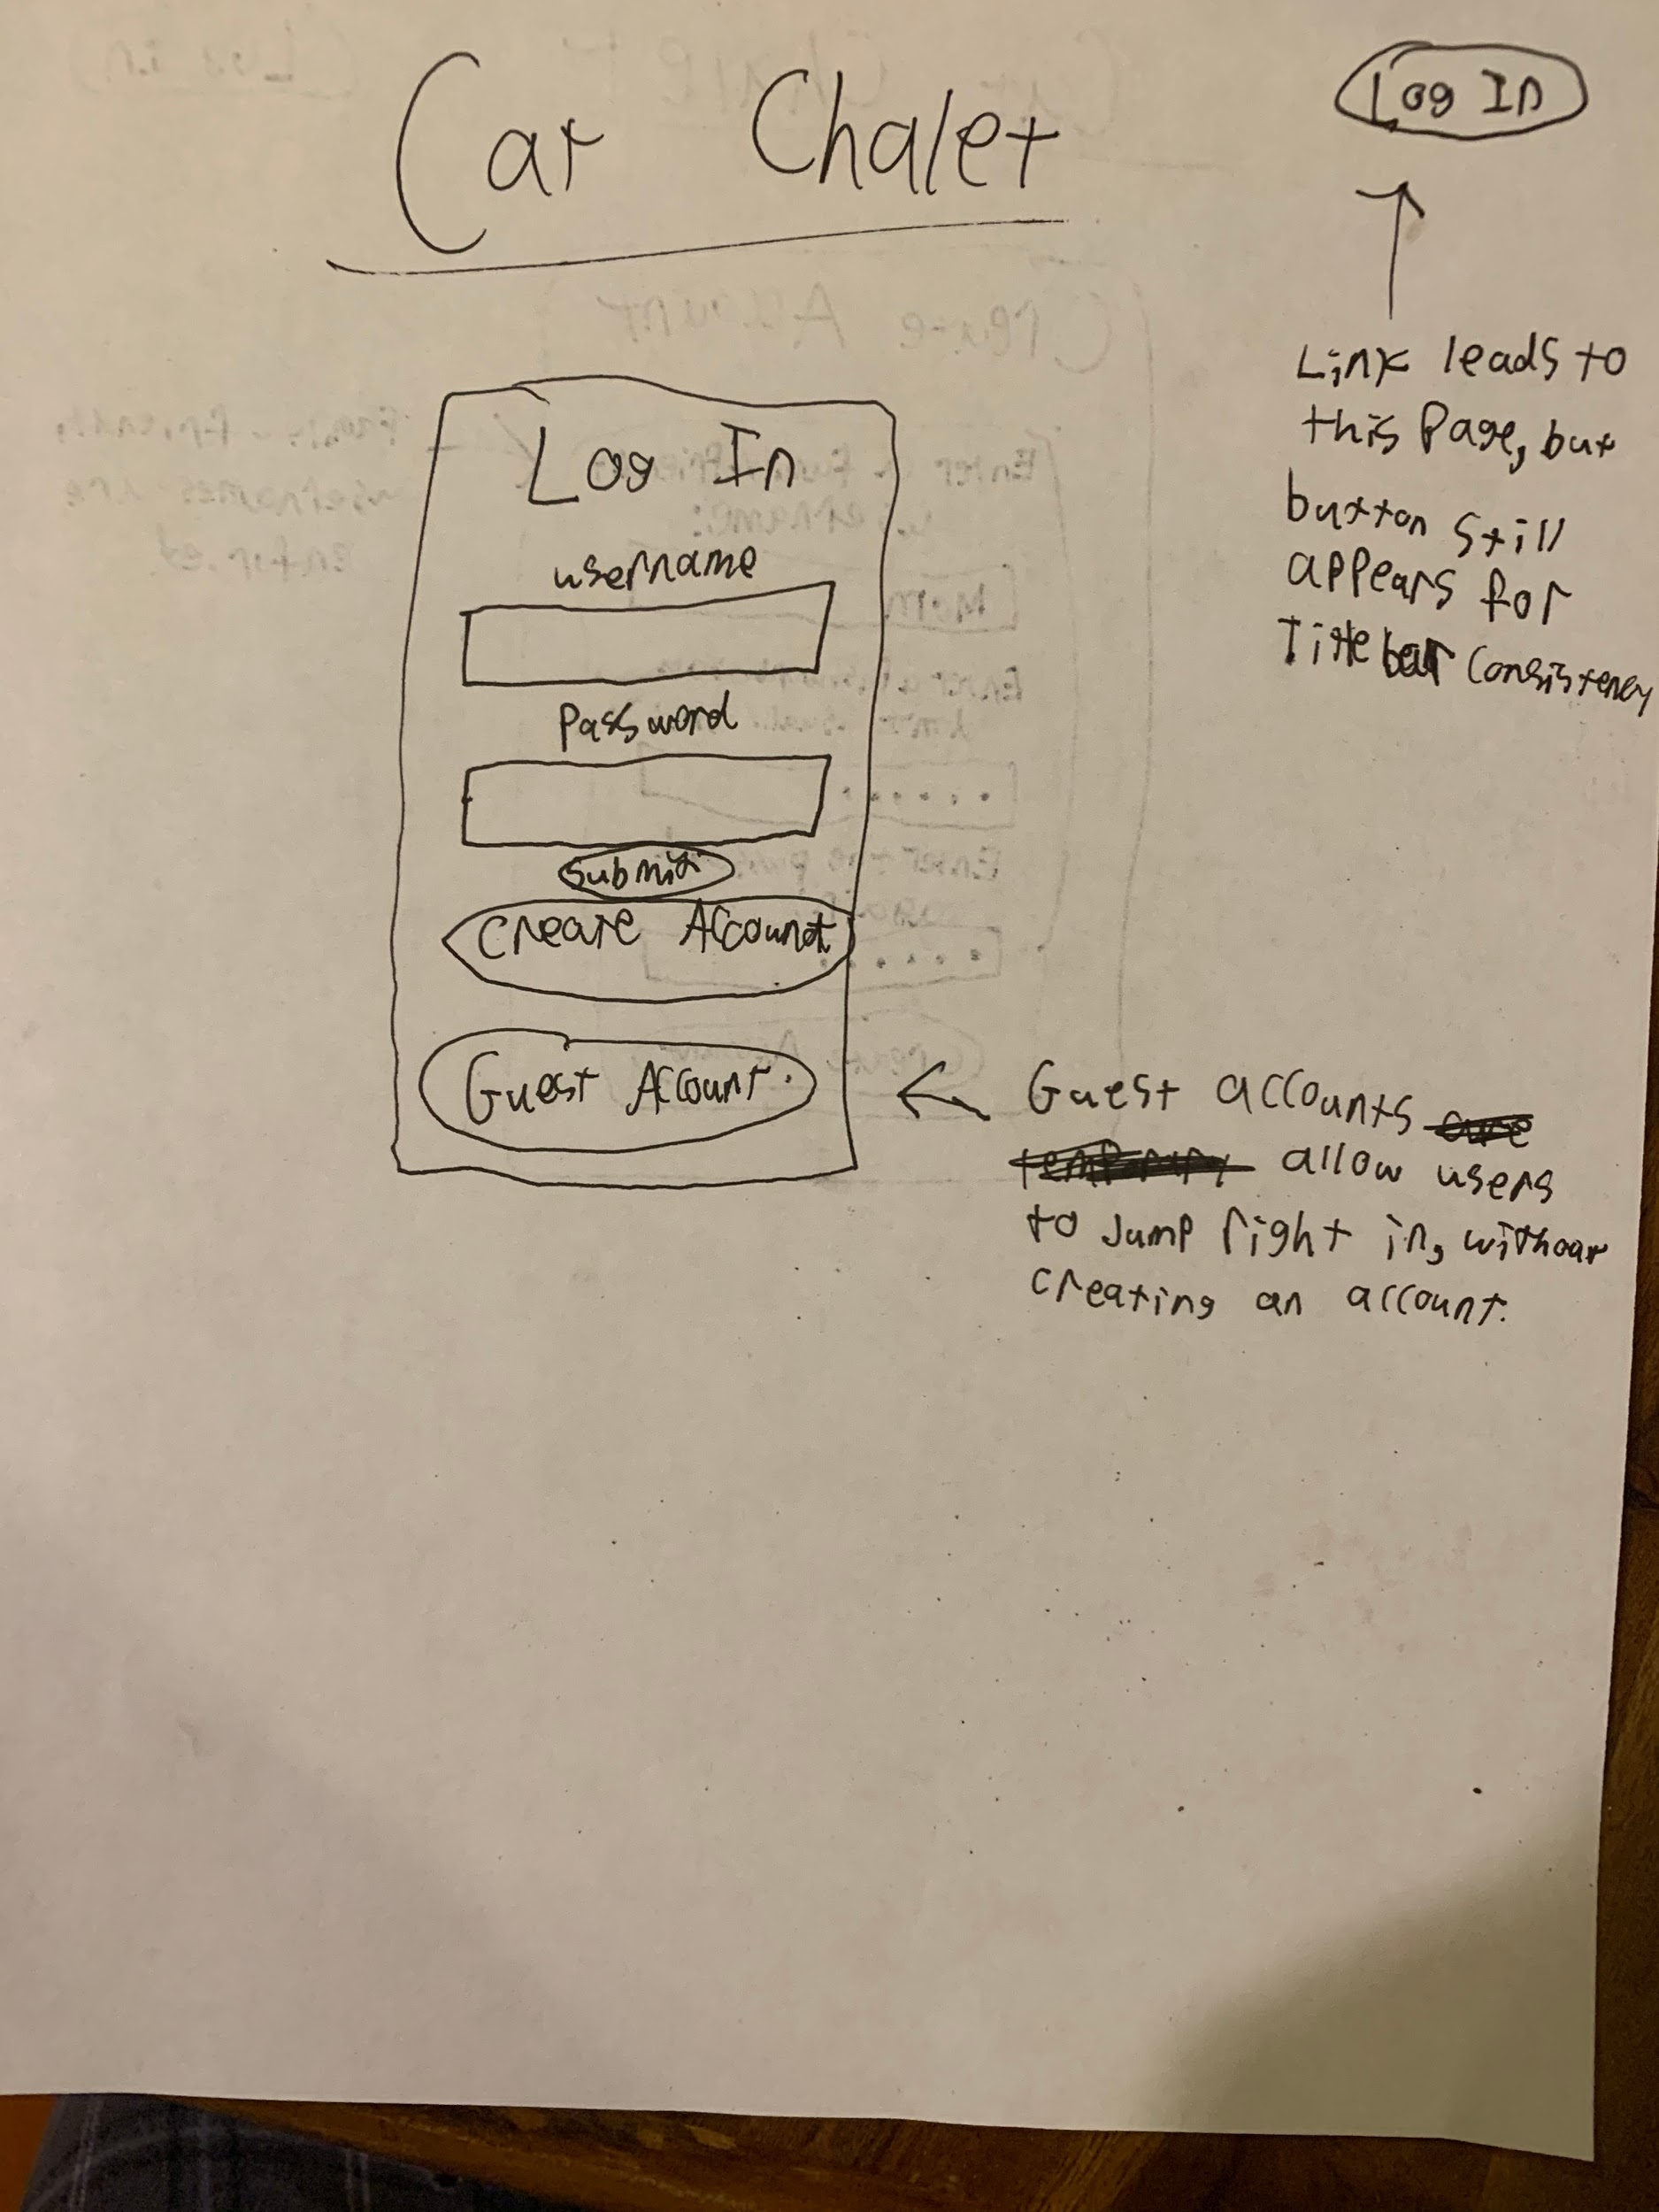 Car Chalet
Log In
Link leads to
this Page, but
button still
appears for
Title bar consistency
Log In
username
Password
Submit
Create Account
Guest Account.
Guest accounts are
temporary allow users
to Jump right in, without
creating an account.